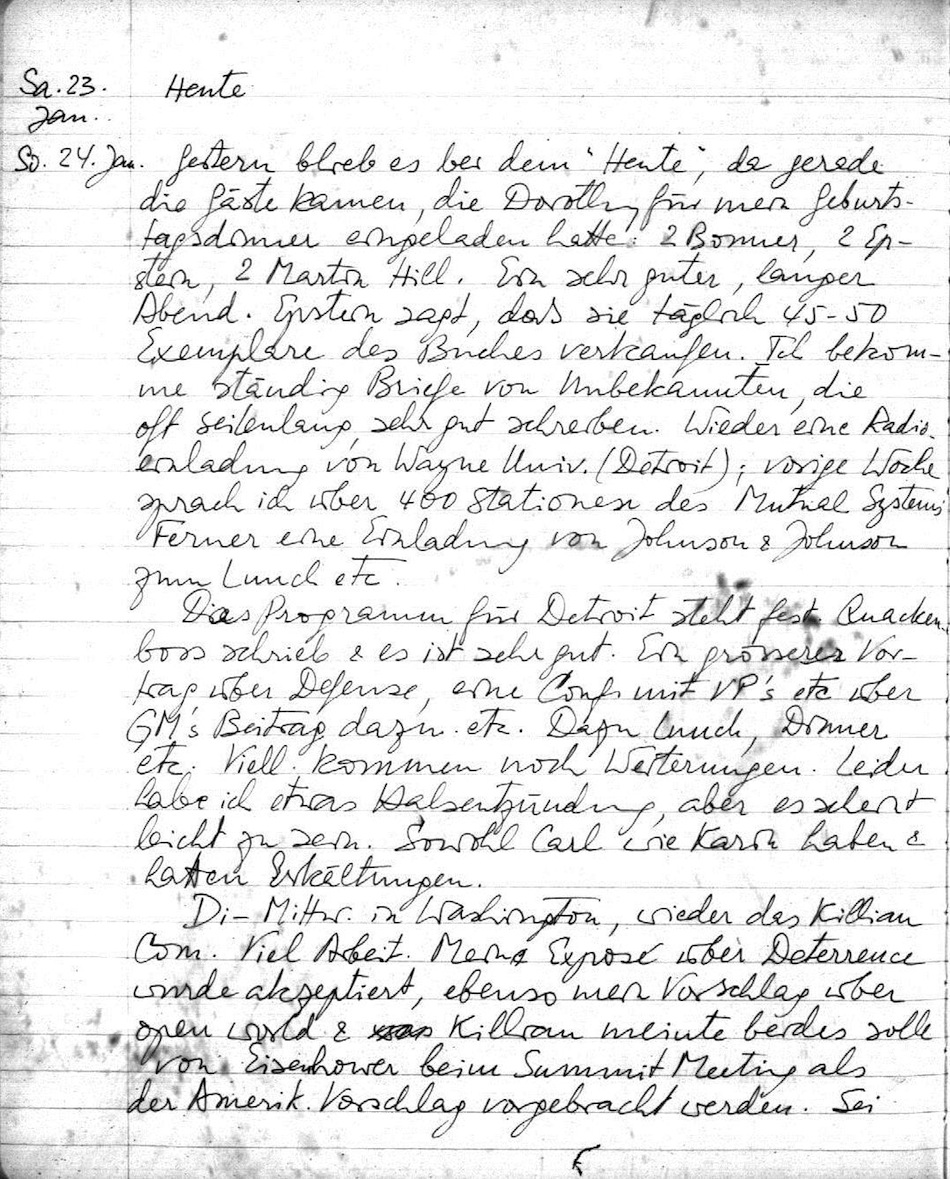 Sa. 23. Heute
Jan.
So. 24. Jan. Gestern blieb es bei dem "Heute", da gerade
die Gäste kamen, die Dorothy für mein Geburts-
tagsdinner eingeladen hatte: 2 Bonner, 2 Ep-
stein, 2 Martin Hill. Ein sehr guter, langer
Abend. Epstein sagt, dass sie täglich 45-50
Exemplare des Buches verkaufen. Ich bekom-
me ständig Briefe von Unbekannten, die
oft seitenlang, sehr gut schreiben. Wieder eine Radio
einladung von Wayne Univ. (Detroit); vorige Woche
sprach ich über 400 Stationen des Mutual Systems
Ferner eine Einladung von Johnson & Johnson
zum Lunch etc.
Das Programm für Detroit steht fest. Quacken
boss schrieb & es ist sehr gut. Ein grösserer Vor-
trag über Defense, eine Conf. mit VP's etc über
GM's Beitrag dazu. etc. Dazu Lunch, Dinner
etc. Viell. kommen noch Weiterungen. Leider
habe ich etwas Halsentzündung, aber es scheint
leicht zu sein. Sowohl Carl wie Karin haben &
hatten Erkältungen.
Di-Mittw. in Washington, wieder das Killian
Com. Viel Arbeit. Meine Exposé über Deterrence
wurde akzeptiert, ebenso mein Vorschlag über
open world & Killian meinte beides solle
von Eisenhower beim Summit Meeting als
der Amerik. Vorschlag vorgebracht werden. Sei